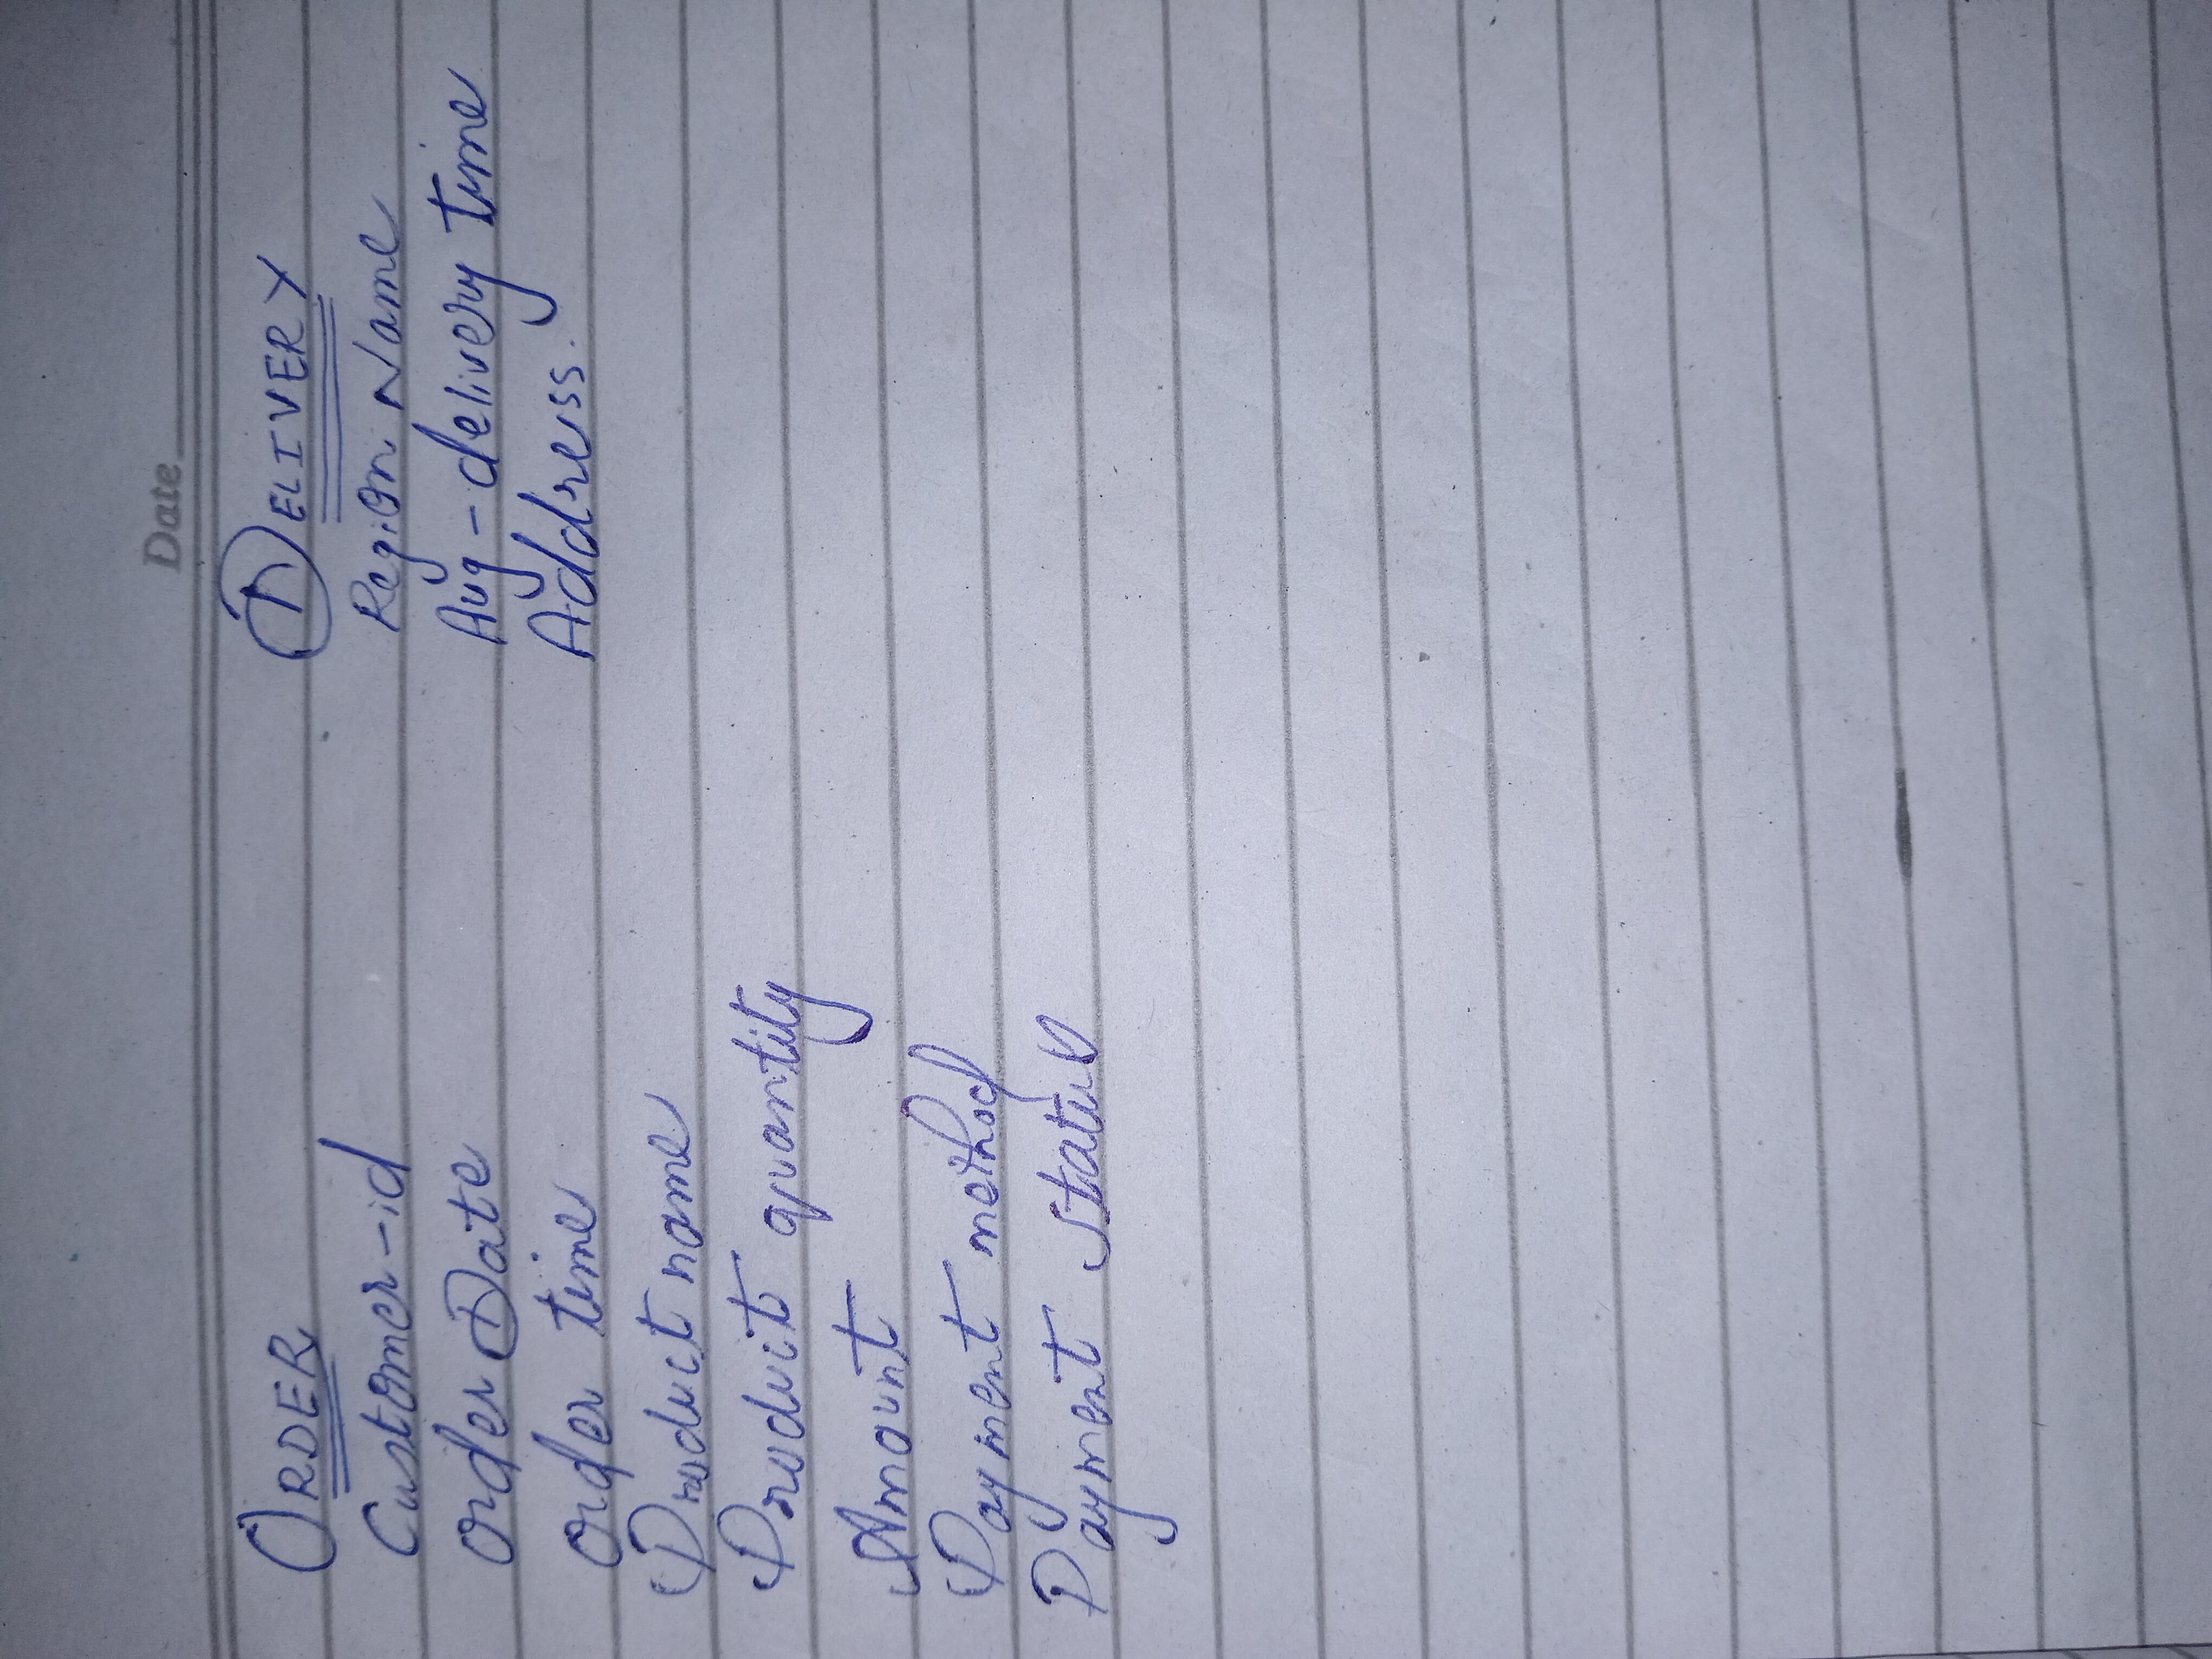 Date
ORDER
Customer-id
Order Date
Order time
Product name
Product quantity
Amount
Payment method
Payment status
DELIVERY
Region Name
Avg-delivery time
Address.